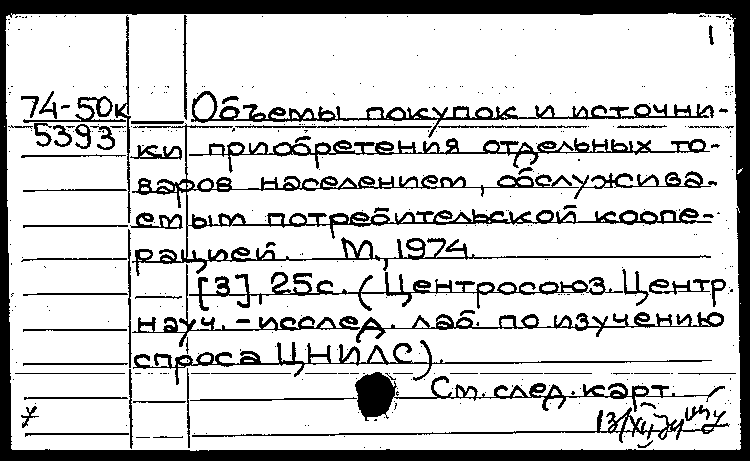 1
74-50к Объемы покупок и источни-
5393
ки приобретения отдельных то-
варов населением, обслужива-
емым потребительской коопе-
рацией. М., 1974.
[3], 25с. (Центросоюз. Центр.
науч.-исслед. лаб. по изучению
спроса ЦНИЛС).
См. след. карт.